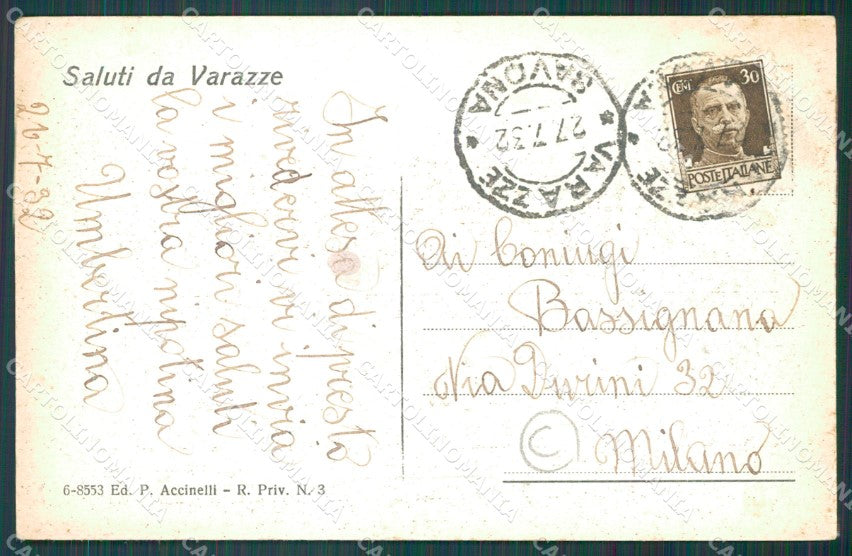 Saluti da Varazze
In attesa di presto
rivedervi vi invia
i migliori saluti
la vostra nipotina
Umbertina
26-7-32
VARAZZE * SAVONA *
27.7.32
CENT 30
POSTE ITALIANE
Ai Coniugi
Bassignana
Via Durini 32
Milano
C
6-8553 Ed. P. Accinelli - R. Priv. N. 3
CARTOLINOMANIA